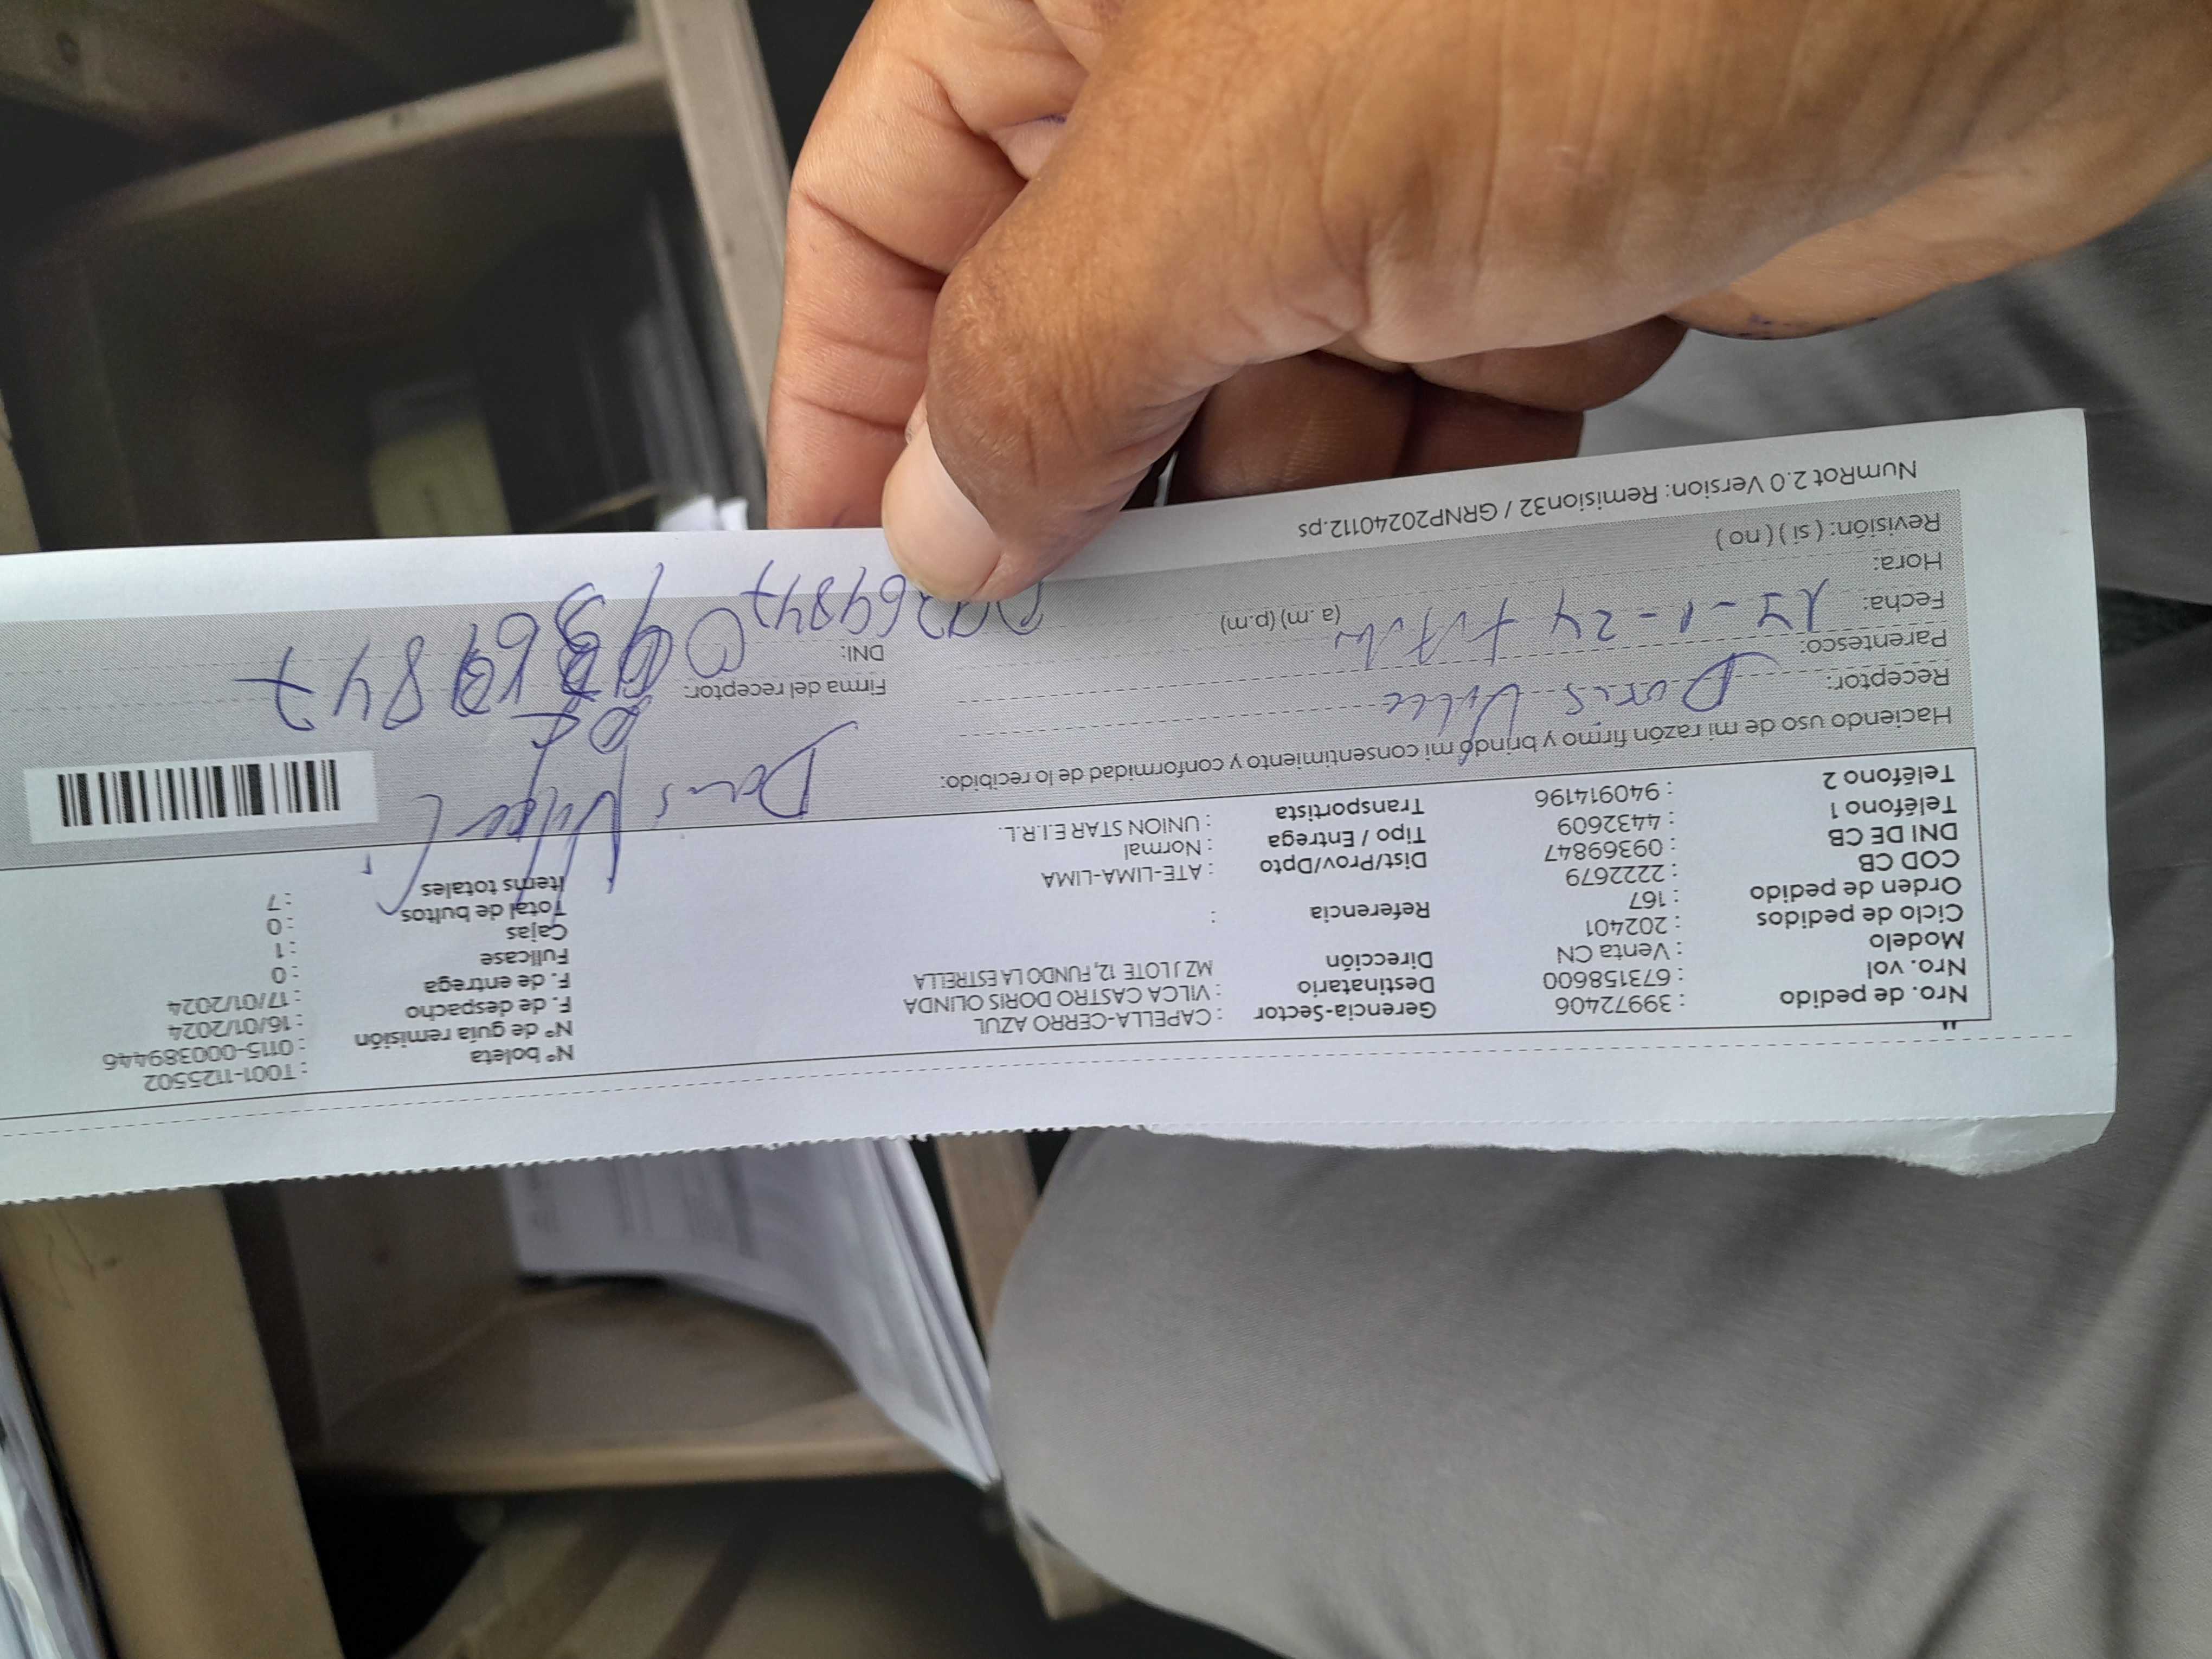 Nro. de pedido : 39972406
Nro. vol : 673158600
Modelo : Venta CN
Ciclo de pedidos : 202401
Orden de pedido : 167
COD CB : 2222679
DNI DE CB : 09369847
Teléfono 1 : 4432609
Teléfono 2 : 940914196
Gerencia-Sector : CAPELLA-CERRO AZUL
Destinatario : VILCA CASTRO DORIS OLINDA
Dirección MZ J LOTE 12, FUNDO LA ESTRELLA
Referencia :
Dist/Prov/Dpto : ATE-LIMA-LIMA
Tipo / Entrega : Normal
Transportista : UNION STAR E.I.R.L.
Nº boleta : T001-1125502
Nº de guía remisión : 0115-000389446
F. de despacho : 16/01/2024
F. de entrega : 17/01/2024
Fullcase : 0
Cajas : 1
Total de bultos : 0
Items totales : 7
Haciendo uso de mi razón firmo y brindo mi consentimiento y conformidad de lo recibido:
Receptor: Doris Vilca
Parentesco:
Fecha: 17-1-24
Hora: (a.m) (p.m)
Revisión: ( si ) ( no )
Doris Vilca C
Firma del receptor:
DNI:
NumRot 2.0 Version: Remision32 / GRNP20240112.ps